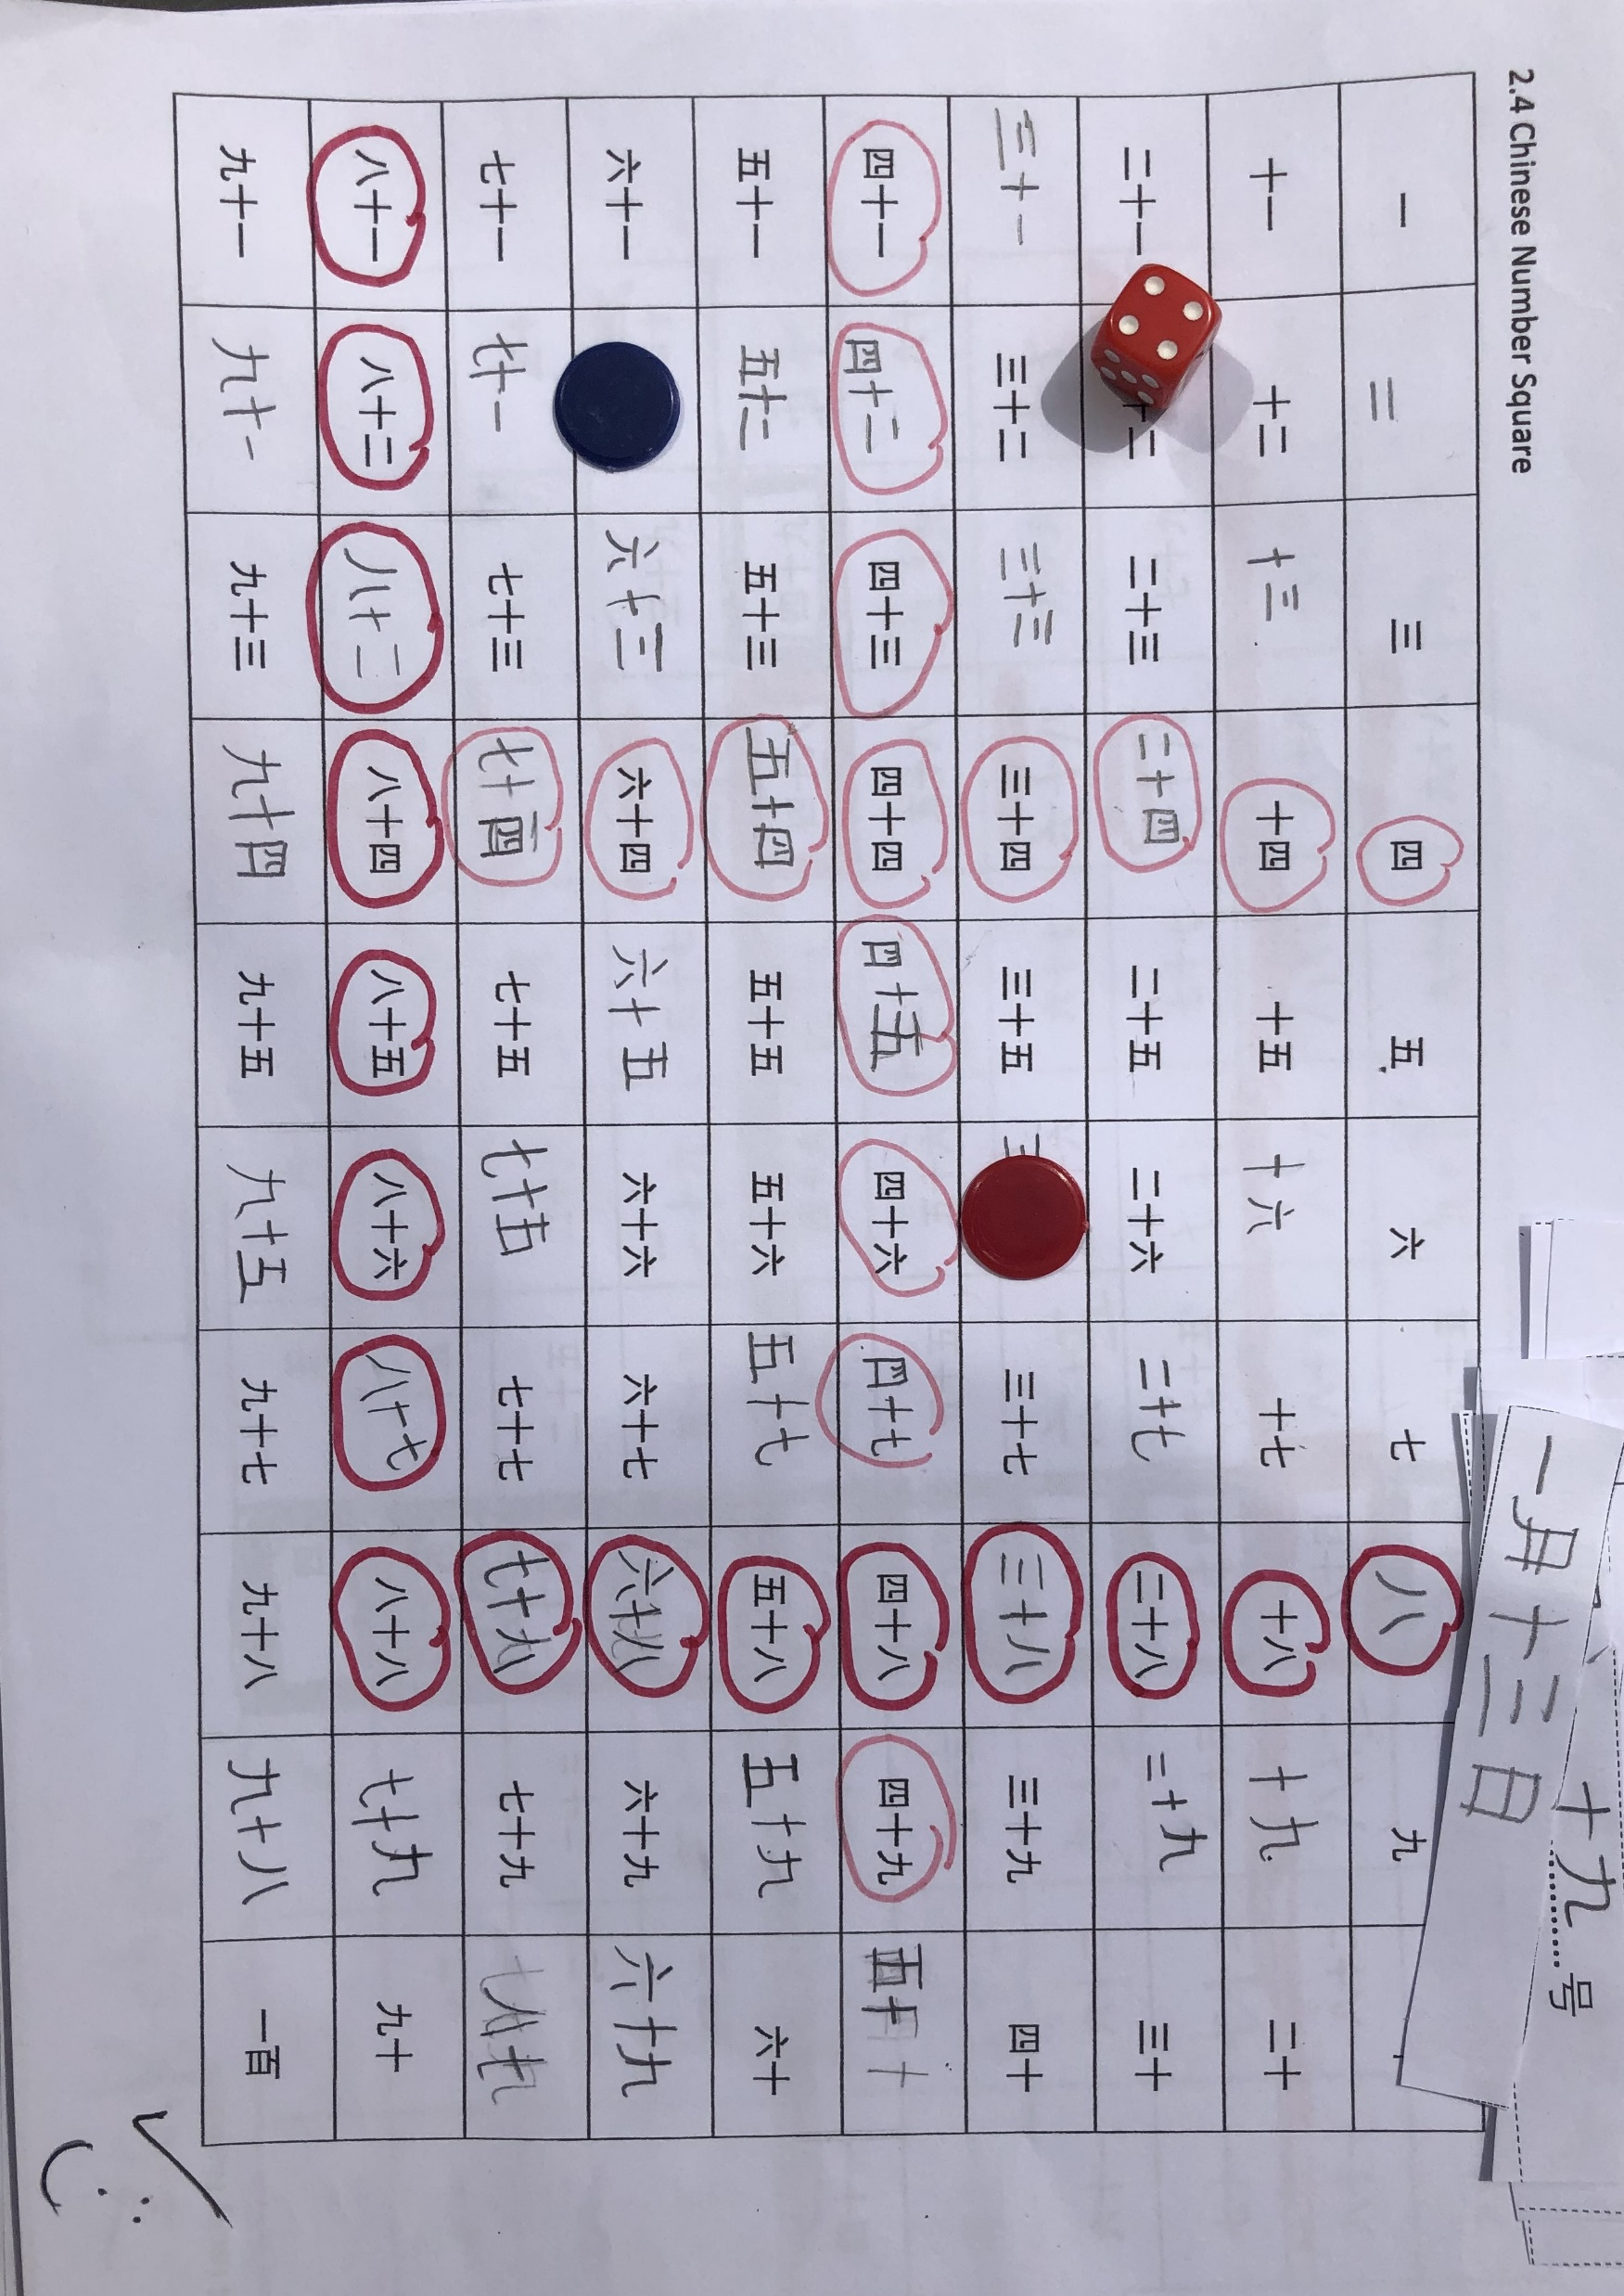 2.4 Chinese Number Square
一 二 三 四 五 六 七 八 九
十一 十二 十三 十四 十五 十六 十七 十八 十九 二十
二十一 十二 二十三 二十四 二十五 二十六 二十七 二十八 二十九 三十
三十一 三十二 三十三 三十四 三十五 三十七 三十八 三十九 四十
四十一 四十二 四十三 四十四 四十五 四十六 四十七 四十八 四十九
五十一 五十二 五十三 五十四 五十五 五十六 五十七 五十八 五十九 六十
六十一 六十三 六十四 六十五 六十六 六十七 六十八 六十九 六十九
七十一 七十一 七十三 七十四 七十五 七十五 七十七 七十八 七十九
八十一 八十二 八十二 八十四 八十五 八十六 八十七 八十八 七十九 九十
九十一 九十一 九十三 九十四 九十五 九十五 九十七 九十八 九十八 一百
十九......号
一月十三日